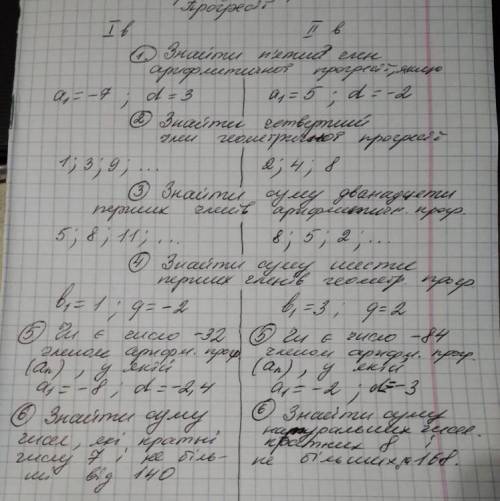 Прогресії
I в II в
① Знайти п'ятий член
арифметичної прогресії, якщо
a₁ = -7 ; d = 3 a₁ = 5 ; d = -2
② Знайти четвертий
член геометричної прогресії
1 ; 3 ; 9 ; ... 2 ; 4 ; 8
③ Знайти суму дванадцяти
перших членів арифметичн. прогр.
5 ; 8 ; 11 ; ... 8 ; 5 ; 2 ; ...
④ Знайти суму шести
перших членів геометр. прогр
b₁ = 1 ; q = -2 b₁ = 3 , q = 2
⑤ Чи є число -32
членом арифм. прогр
(aₙ) , у якій
a₁ = -8 ; d = -2,4
⑤ Чи є число -84
членом арифм. прогр.
(aₙ) , у якій
a₁ = -2 ; d = -3
⑥ Знайти суму
чисел, які кратні
числу 7 і не біль-
ші від 140
⑥ Знайти суму
натуральних чисел.
кратних 8 і
не більших 168.